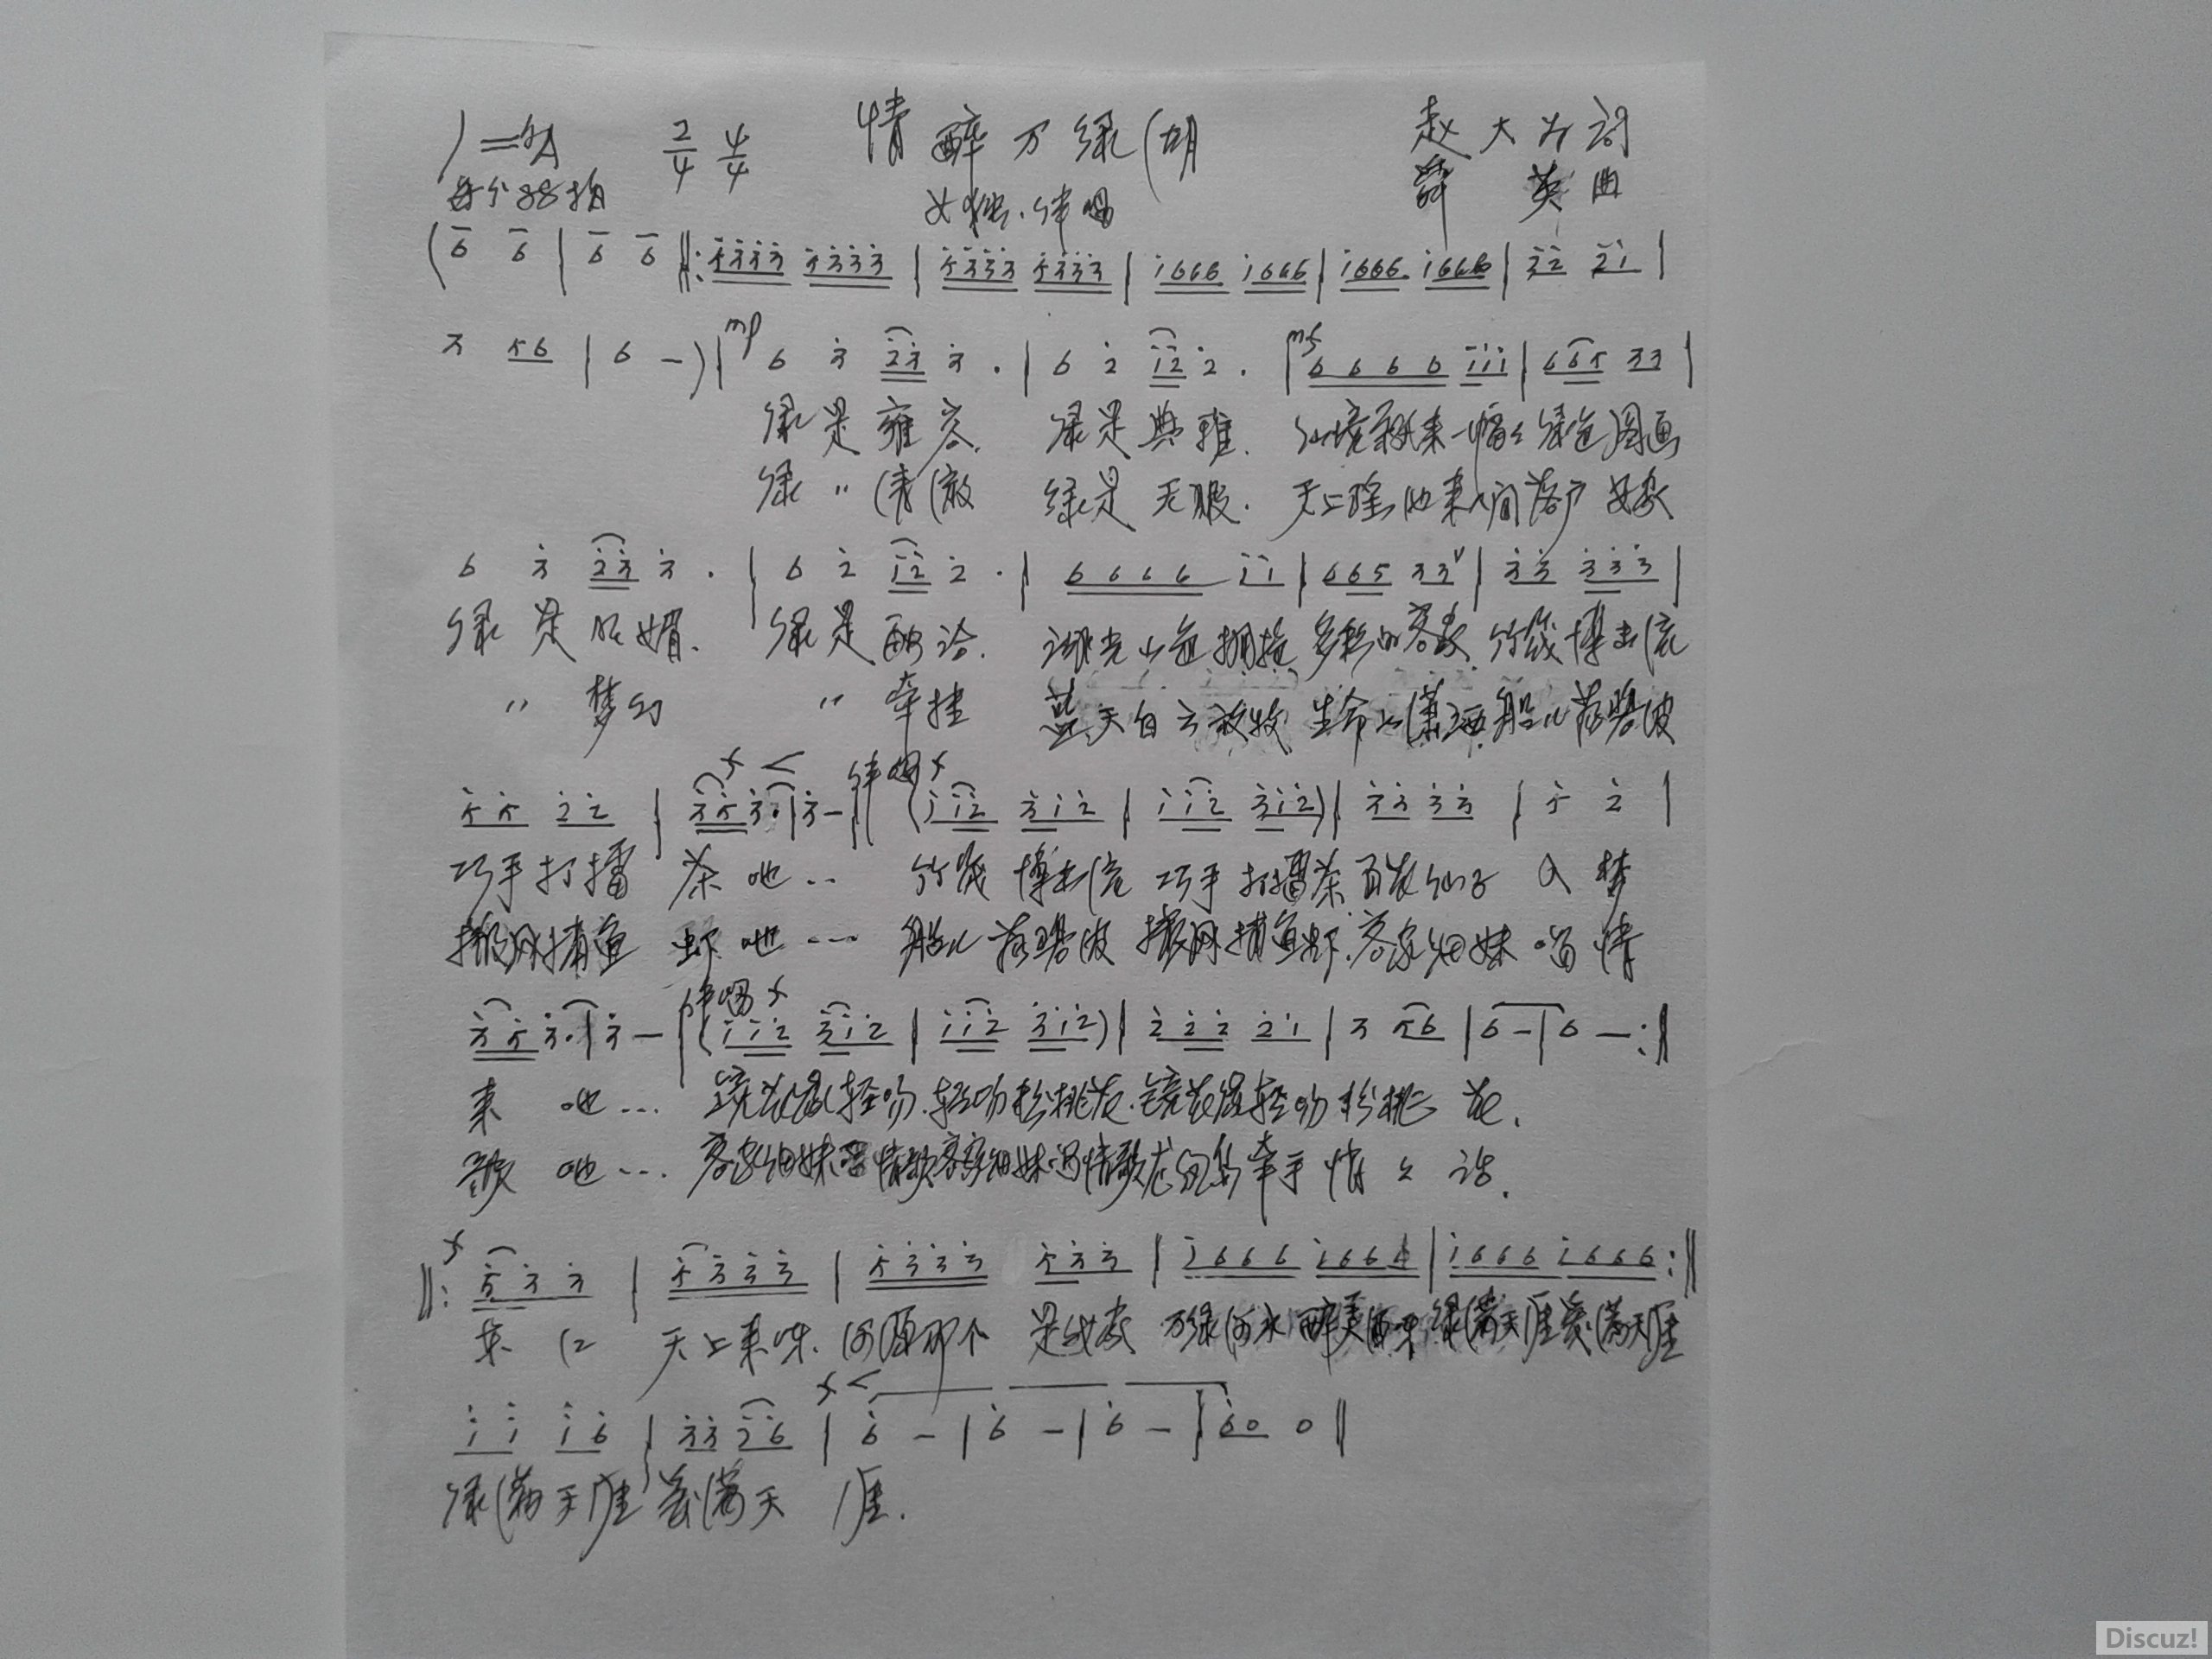 1=♭A 2/4 4/4 情醉万绿湖 赵大为词
每分88拍 女独.伴唱 薛 英 曲
(6 6 | 6 6 ‖: 5333 5333 | 5333 5333 | 1666 1666 | 1666 1666 | 32 21 |
3 56 | 6 —) | mp 6 3 23 3 . | 6 2 12 2 . | mf 6 6 6 6 111 | 665 33 |
绿是雍容. 绿是典雅. 仙境飘来一幅幅绿色图画
绿〃清澈 绿是无暇. 天上瑶池来人间落户安家
6 3 23 3 . | 6 2 12 2 . | 6 6 6 6 11 | 665 33 | 33 333 |
绿是妩媚. 绿是融洽. 湖光山色拥抱多彩的客家 竹筏搏击流
〃 梦幻 〃 牵挂 蓝天白云放牧生命的潇洒 船儿荡碧波
55 22 | 353· | 3 — ‖ 伴唱 f (112 312 | 112 312) | 33 33 | 5 2 |
巧手打擂 茶吔… 竹筏搏击流 巧手打擂茶 百花仙子 入梦
撒网捕鱼 虾吔… 船儿荡碧波 撒网捕鱼虾. 客家细妹唱情
353· | 3 — | 伴唱 f (112 312 | 112 312) | 222 21 | 3 56 | 6 — | 6 — :‖
来 吔… 镜花湿轻吻粉桃 花.
歌 吔… 客家细妹唱情歌客家细妹唱情歌 牵手情 话.
f ‖: 533 | 5333 | 5333 533 | 1666 1666 | 1666 1666 :‖
东江 天上来哚. 河源那个是我家 万绿河水醉美 绿满天涯 满天涯
11 16 | 33 26 | f < 6 — | 6 — | 6 — | 60 0 ‖
绿满天涯 满天 涯.
Discuz!